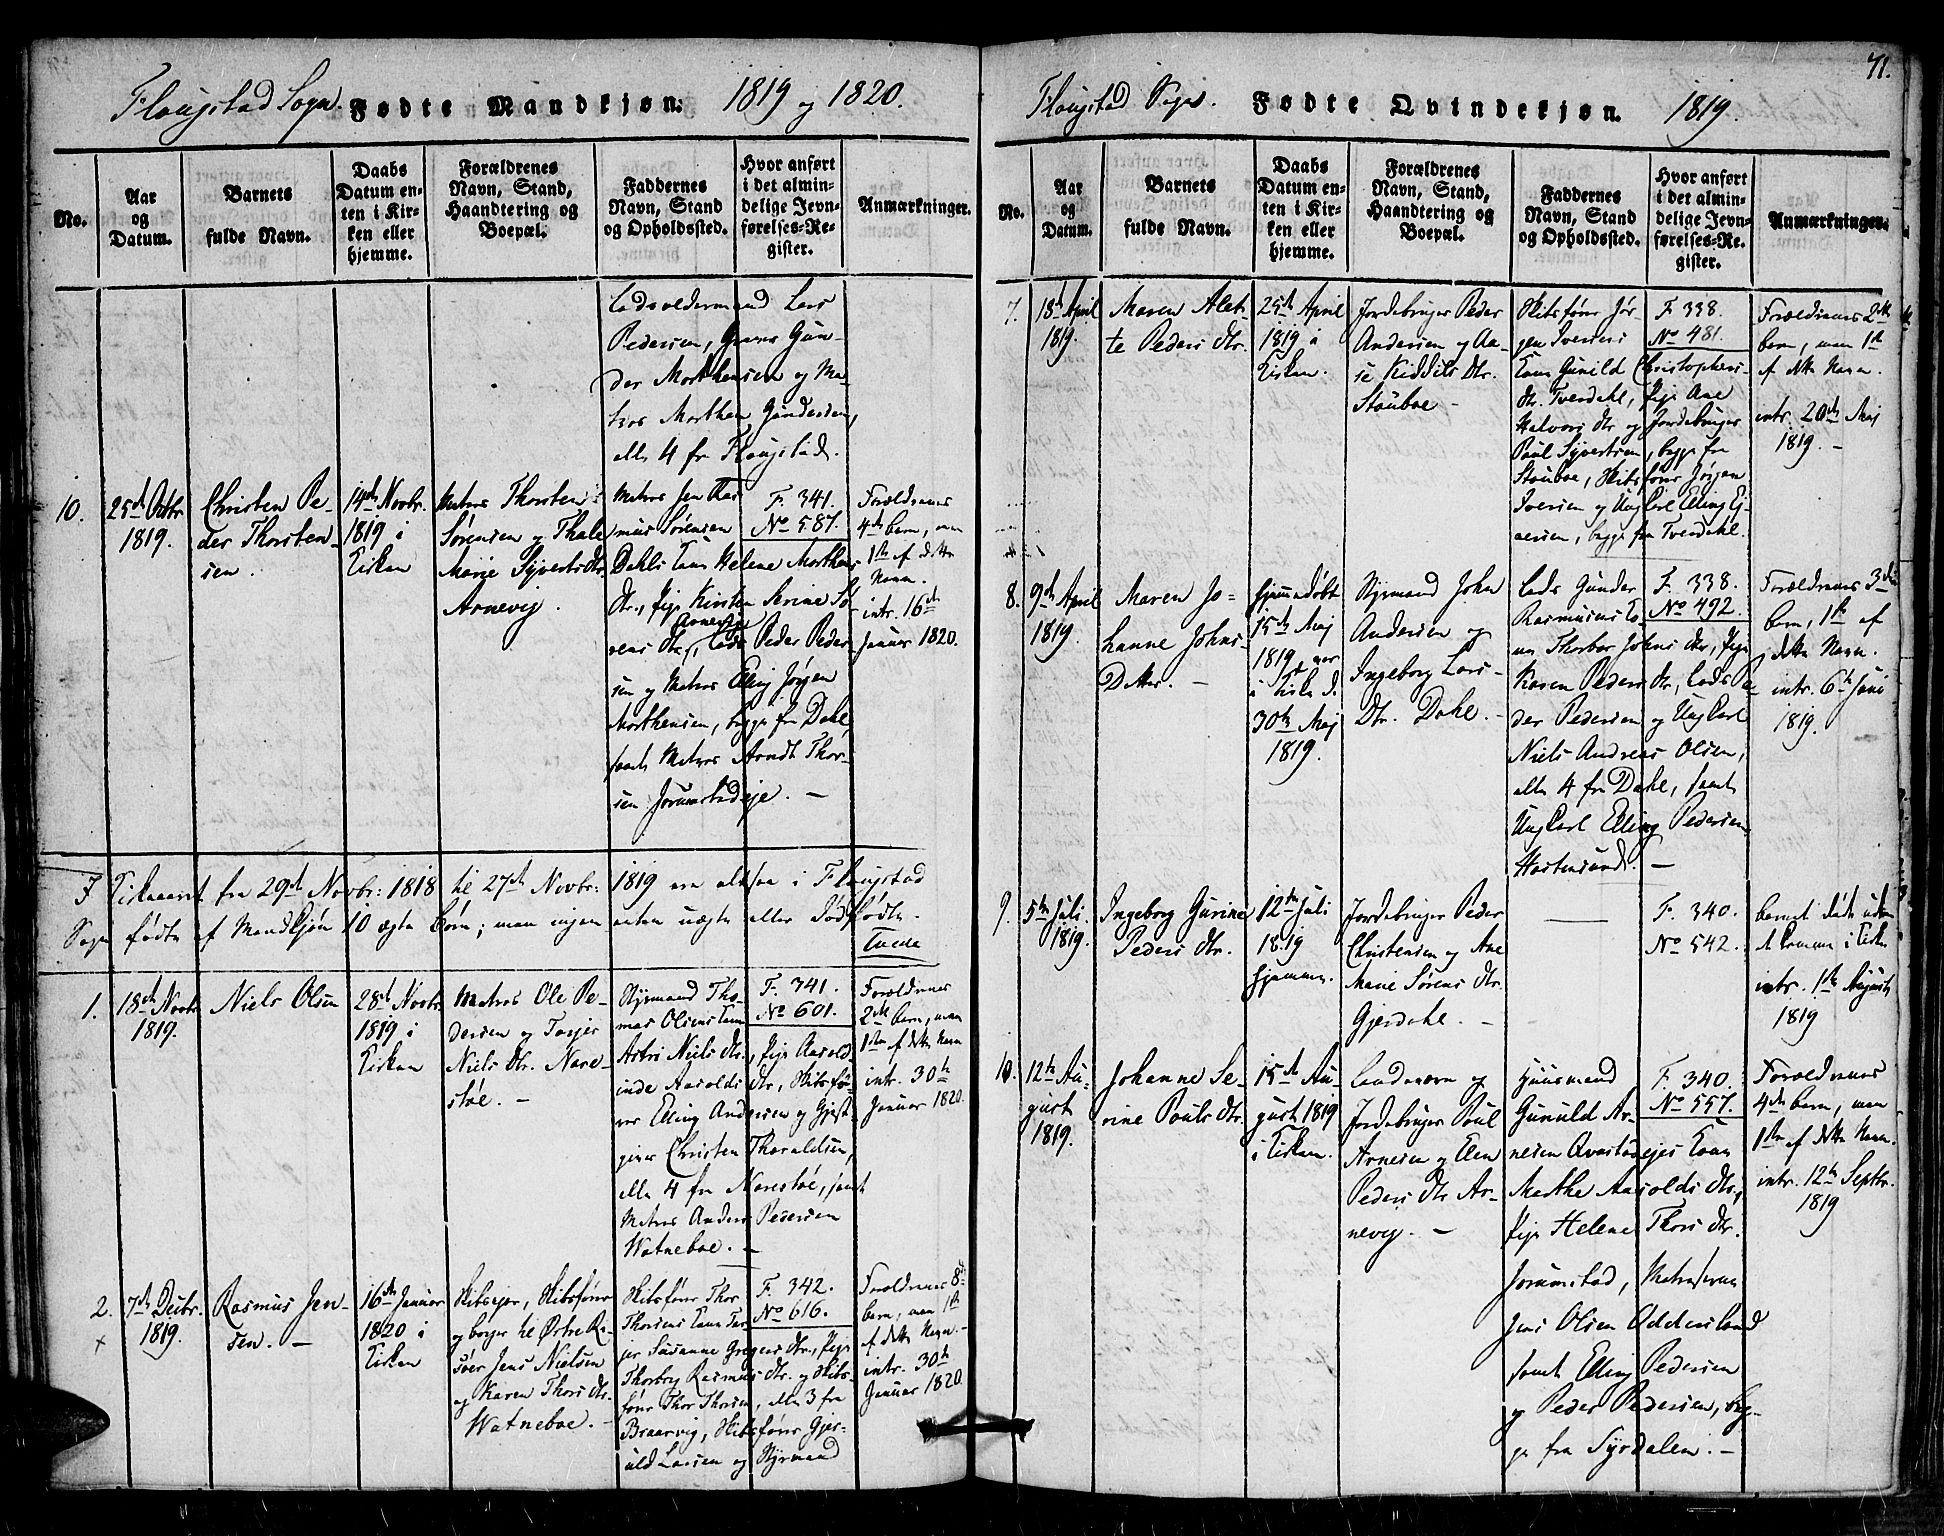 Flaugstad Sogn. Fødte Mandkjøn: 1819 og 1820.
No.
Aar
og
Datum.
Barnets
fulde Navn.
Daabs
Datum en-
ten i Kir-
ken eller
hjemme.
Forældrenes
Navn, Stand,
Haandtering og
Boepæl.
Faddernes
Navn, Stand
og Opholdssted.
Hvor anført
i det almin-
delige Jevn-
førelses-Re-
gister.
Anmærkninger.
Lods oldermand Lars
Pedersen, Gravs Gun-
der Morthensen og Ma-
tros Morthen Gundersen,
alle 4 fr Flaugstad.
10.
25de Octbr
1819.
Christen Pe-
der Thorsten-
sen.
14de Novbr.
1819 i
Kirken
Matros Thorsten
Sørensen og Thale
Marie Syverts Dtr.
Arnevig.
Matros Jen Ras
mus Sørensen
Dahls Kone Helene Morthens
Dtr., Pige Kirsten Serine Sø-
rens Dtr. Arnevig, Lods Peder Peder
sen og Matros Elling Jørgen
Morthensen, begge fra Dahle,
samt Matros Arndt Thor-
sen Jorunstadeje. —
F. 341.
No 587.
Forældrenes
4de barn, men
1te af dette
Navn.
intr. 16de
Januar 1820.
I Kirkeaaret fra 29de Novbr: 1818 til 27de Novbr: 1819 ere altsaa i Flaugstad
Sogn fødte af Mandkjøn 10 ægte Børn; men ingen enten uægte eller Dødfødte.
Tuede
1.
18de Novbr
1819.
Niels Olsen
28de Novbr.
1819 i
Kirken
Matros Ole Pe-
dersen og Tarjer
Niels Dtr. Nare-
støe. —
Styrmand Tho-
mas Olsens Kone
Astri Niels Dtr., Pige Aasold
inde Aasolds Dtr, Skibsfø-
rer Elling Andersen og Gjest
giver Christen Tharaldsen,
alle 4 fra Narestøe, samt
Matros Anders Pedersen
Watneboe. —
F. 341.
No 601.
Forældrenes
2de barn, men
1ste af dette Navn
intr. 30te
Januar 1820.
2.
7de Decbr.
1819.
Rasmus Jen-
sen. —
16de Januar
1820 i
Kirken
Skibsejer, Skibsfører
og borger til Østre Ri-
søer Jens Nielsen
og Karen Thors Dtr.
Watneboe. —
Skibsfører Thor
Thorsens Kone Tar-
jer Susanne Gregers Dtr., Pige
Thorborg Rasmus Dtr. og Skibs-
fører Thor Thorsen, alle 3 fra
Braarvig, Skibsfører Gjer-
uld Lassen og Styrmand
F. 342.
No 616.
Forældrenes 8de
barn, men 1te
af dette Navn. —
intr. 30te
Januar 1820.
71.
Flaugstad Sogn. Fødte Qvindekjøn. 1819.
No.
Aar
og
Datum.
Barnets
fulde Navn.
Daabs
Datum en-
ten i Kir-
ken eller
hjemme.
Forældrenes
Navn, Stand,
Haandtering og
Boepæl.
Faddernes
Navn, Stand
og Opholdssted.
Hvor anført
i det almin-
delige Jevn-
førelses-Re-
gister.
Anmærkninger.
7.
18de April
1819.
Maren Alet-
te Peders Dtr.
25de April
1819 i
Kirken.
Jordebruger Peder
Andersen og Aa-
se Kiddils Dtr.
Stouboe —
Skibsfører Jør-
gen Iversens
Kone Gunild Christophers-
Dtr. Tverdahl, Pige Ane
Halvors Dtr og Jordebruger
Poul Syvertsen, begge fra
Stouboe, Skibsfører Jørgen
Iversen og Ung Carl Elling Ej-
versen, begge fra Tverdahl.
F. 338.
No 481.
Forældrenes 2de
barn, men 1te
af dette Navn.
intr. 20de Maj
1819. —
8.
9de April
1819.
Maren Jo-
hanne Johns-
Datter. —
hjemmedøbt
15de Maj
1819, var
i Kirke d.
30te Maj
1819.
Styrmand John
Andersen og
Ingeborg Lars-
Dtr. Dahle. —
Lods Gunder
Rasmusens Ko-
ne Thorbor Johns Dtr, Pige
Karen Peders Dtr, Lods Pe-
der Pedersen og Ung Carl
Niels Andreas Olsen,
alle 4 fra Dahle, samt
Ung Carl Elling Pedersen
Hastensund. —
F. 338.
No 492.
Forældrenes 3die
barn, 1te af
dette Navn.
intr. 6te Juni
1819.
9.
5te Juli
1819.
Ingeborg Gurine
Peders Dtr.
12te Juli
1819
hjemme.
Jordebruger Peder
Christensen og Ane
Marie Sørens Dtr.
Gjerdahl. —
F. 340.
No 542.
barnet døde uden
at komme i Kirke
intr. 1te Augusti
1819
10.
12te Au-
gust
1819.
Johanne Se-
rine Pouls Dtr.
15de Au-
gust 1819
i Kirken.
Landværn og
Jordebruger Poul
Arnesen og Elen
Peders Dtr Ar-
nevig. —
Huusmand
Gunuld Ar-
nesen Qvastadejes Kone
Marthe Aasolds Dtr,
Pige Helene Thors Dtr.
Jorunstad, Matroserne
Jens Olsen Addersland
samt Elling Pedersen
og Peder Pedersen, beg-
ge fra Syrdalen. —
F. 340.
No 557.
Forældrenes
4de barn, men
1te af dette Navn.
intr. 12te Septbr.
1819